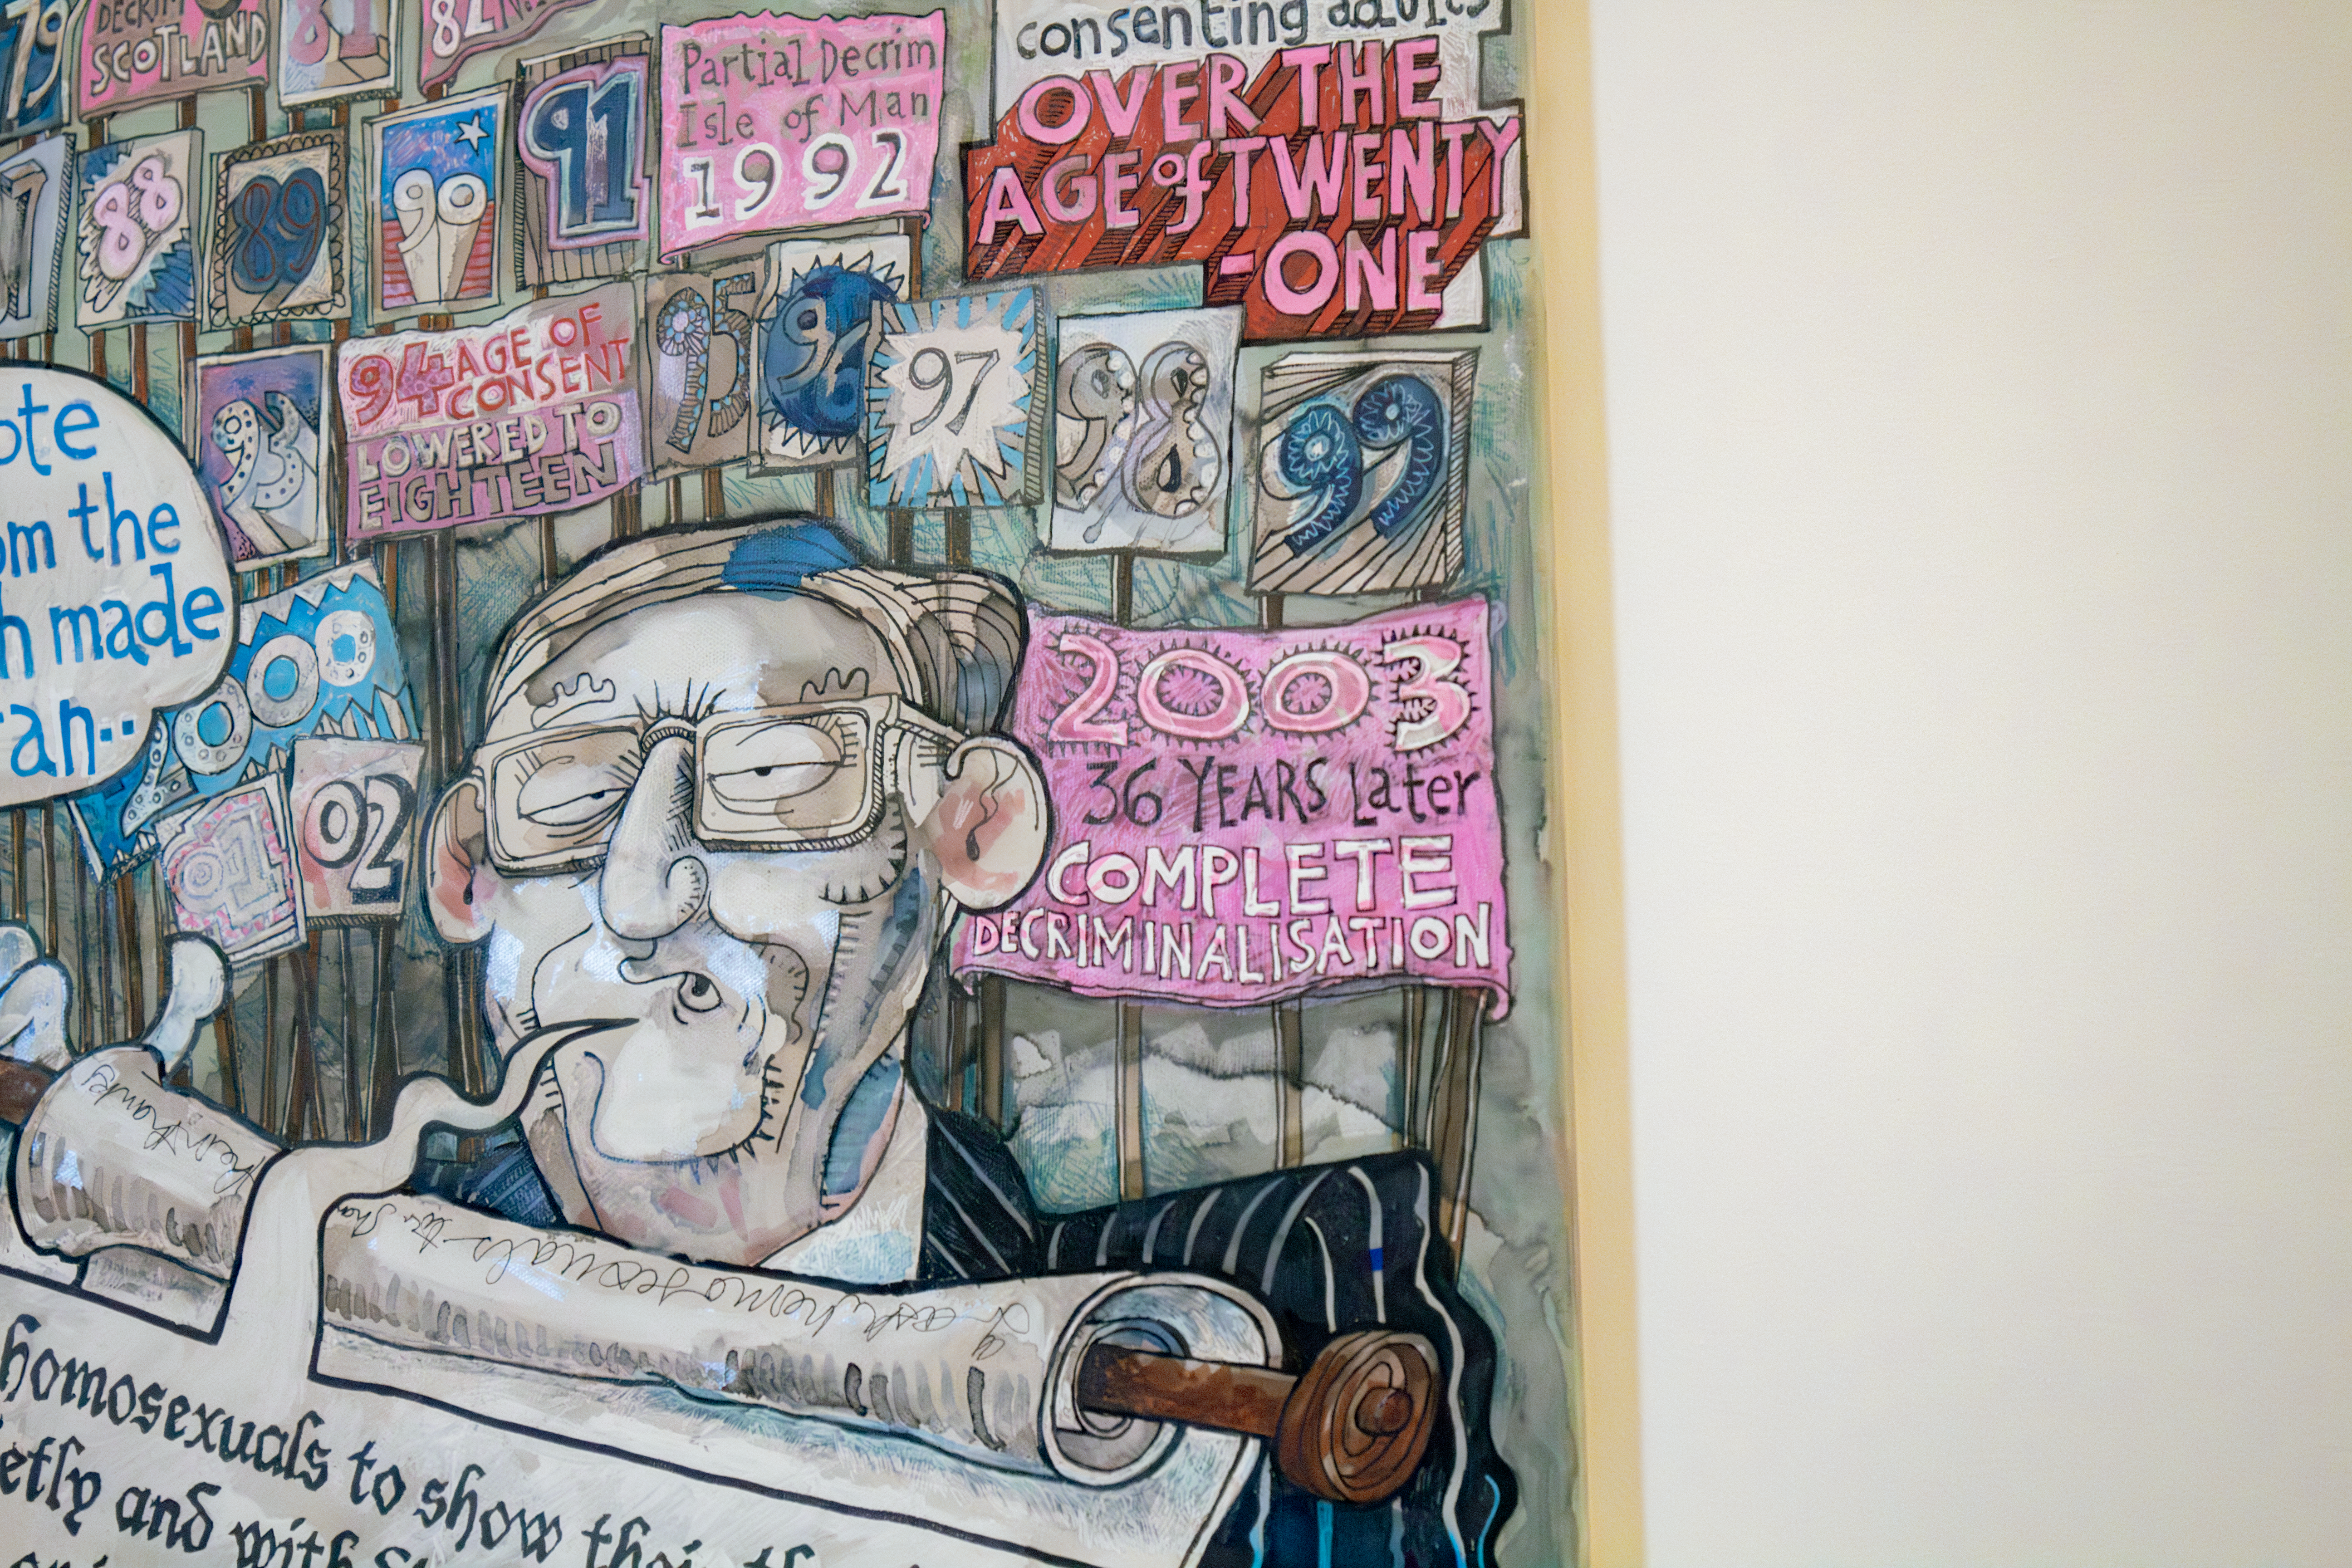 79
DECRIM
SCOTLAND
81
82
consenting adults
OVER THE
AGE of TWENTY
-ONE
88
89
90
91
Partial Decrim
Isle of Man
1992
93
94 AGE OF
CONSENT
LOWERED TO
EIGHTEEN
95
96
97
98
99
the
made
2000
01
02
2003
36 YEARS Later
COMPLETE
DECRIMINALISATION
I ask homosexuals to sho
homosexuals to show their
and with